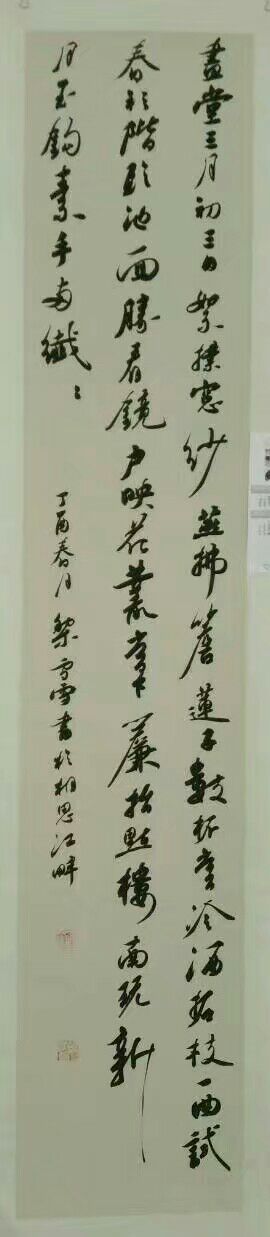 畫堂三月初三日絮撲窓紗燕拂簷蓮子數杯嘗冷酒柘枝一曲試
春衫階臨池面勝看鏡戶映花叢當下簾指點樓南玩新
月玉鈎素手兩纖〻
丁酉春月 雪書於相思江畔